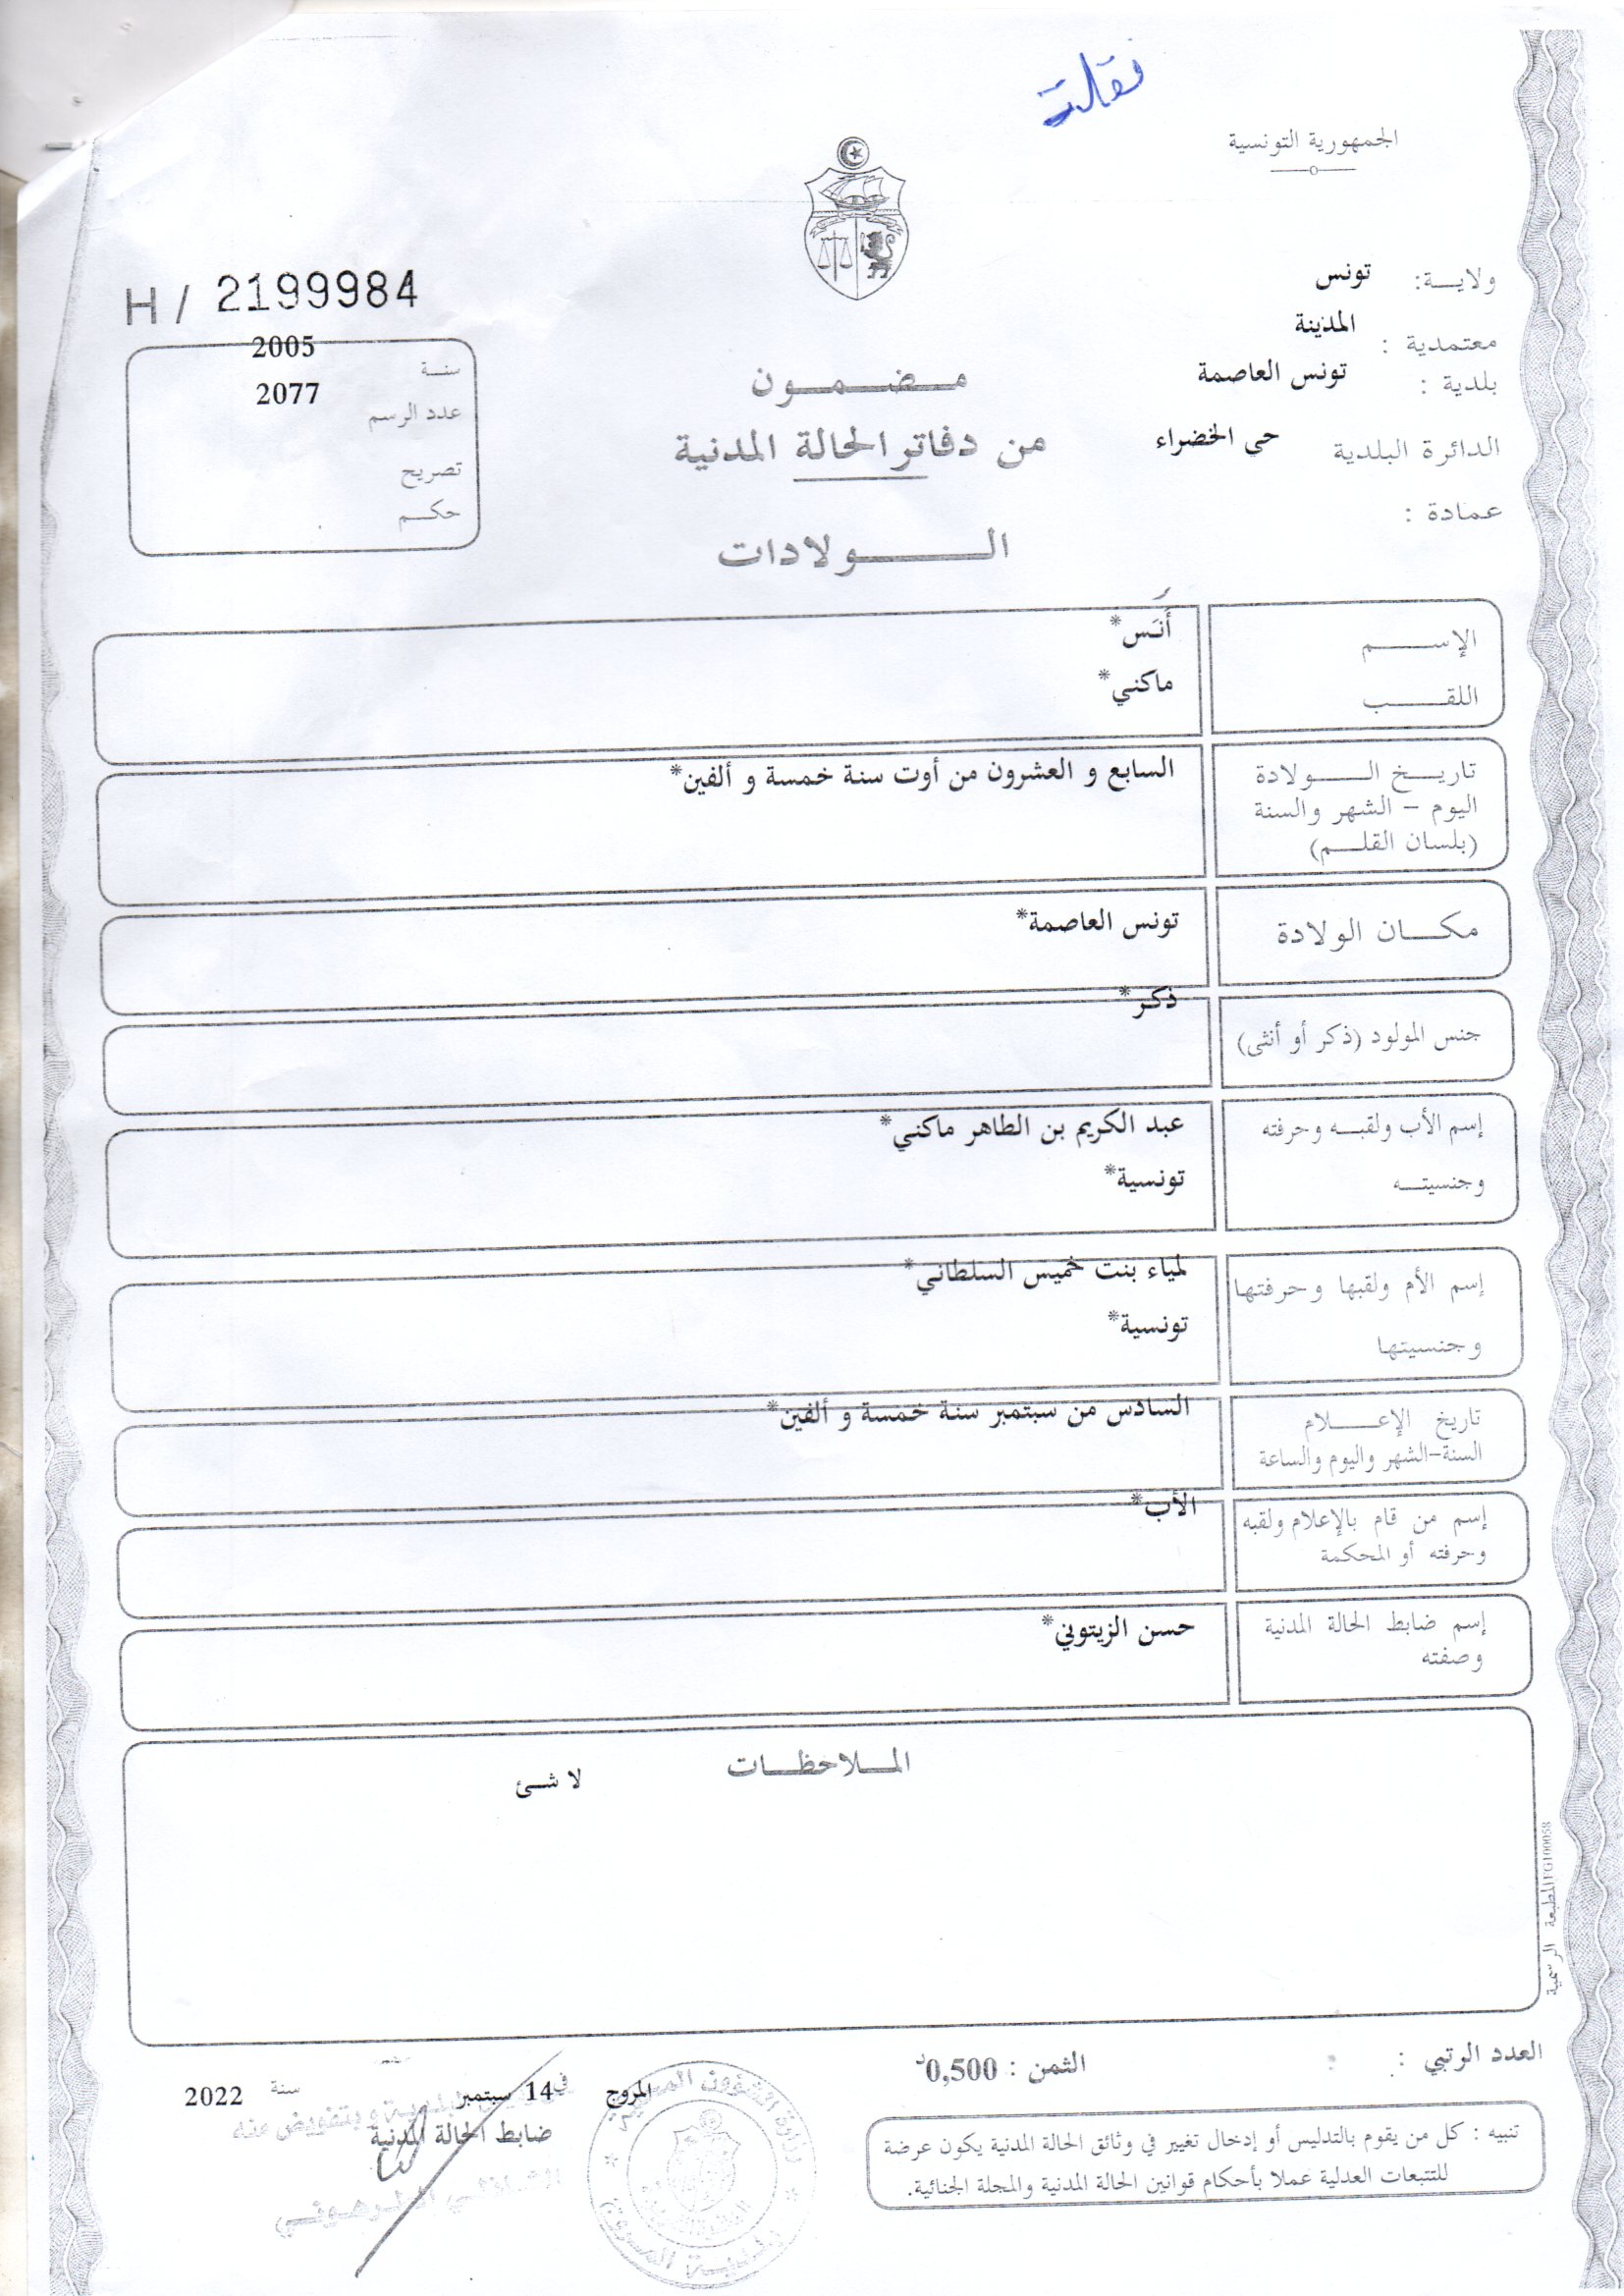 نقلة
الجمهورية التونسية
ولايـــة: تونس
معتمدية : المدينة
بلدية : تونس العاصمة
الدائرة البلدية حي الخضراء
عمادة :
H / 2199984
سنــة 2005
عدد الرسم 2077
تصريح
حكــم
مــضــمــون
من دفاتر الحالة المدنية
الـــــــولادات
الإســــــم أَنَس*
اللقــــــب ماكني*
تاريــخ الــــولادة السابع و العشرون من أوت سنة خمسة و ألفين*
اليوم - الشهر والسنة
(بلسان القلــم)
مكــــان الولادة تونس العاصمة*
جنس المولود (ذكر أو أنثى) ذكر*
إسم الأب ولقبــه وحرفته عبد الكريم بن الطاهر ماكني*
وجنسيتــه تونسية*
إسم الأم ولقبها وحرفتها لمياء بنت خميس السلطاني*
وجنسيتها تونسية*
تاريخ الإعــــــلام السادس من سبتمبر سنة خمسة و ألفين*
السنة-الشهر واليوم والساعة
إسم من قام بالإعلام ولقبه الأب*
وحرفته أو المحكمة
إسم ضابط الحالة المدنية حسن الزيتوني*
وصفته
المــلاحظــات
لا شئ
المطبعة الرسمية FG100058
العدد الرتبي :
الثمن : 0,500د
المروج في 14 سبتمبر سنة 2022
ضابط الحالة المدنية
وبتفويض منه
بلدية المروج
تنبيه : كل من يقوم بالتدليس أو إدخال تغيير في وثائق الحالة المدنية يكون عرضة
للتتبعات العدلية عملا بأحكام قوانين الحالة المدنية والمجلة الجنائية.